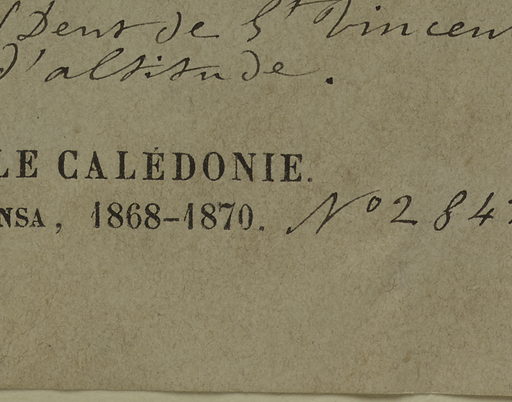 Dent de St Vincent
d'altitude.
LE CALÉDONIE.
NSA, 1868-1870. No 284